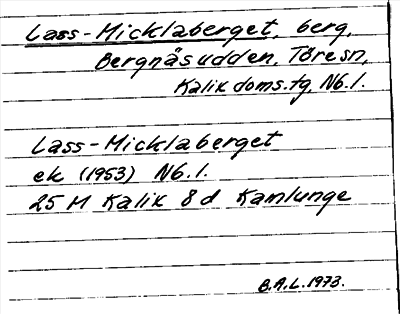 Lass-Micklaberget, berg,
Bergnäsudden, Töresn,
Kalix doms.tg, Nb.l.
Lass-Micklaberget
ek (1953) Nb.l.
25 M Kalix 8 d Kamlunge
B.A.L. 1973.